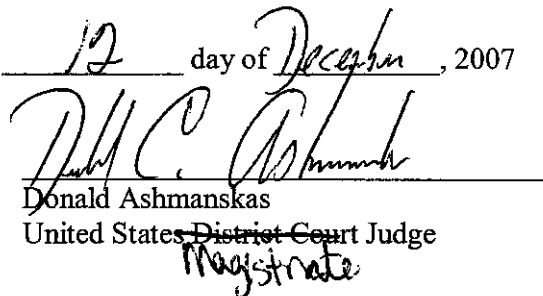 12 day of December, 2007
Donald C. Ashmanskas
Donald Ashmanskas
United States District Court Judge
Magistrate